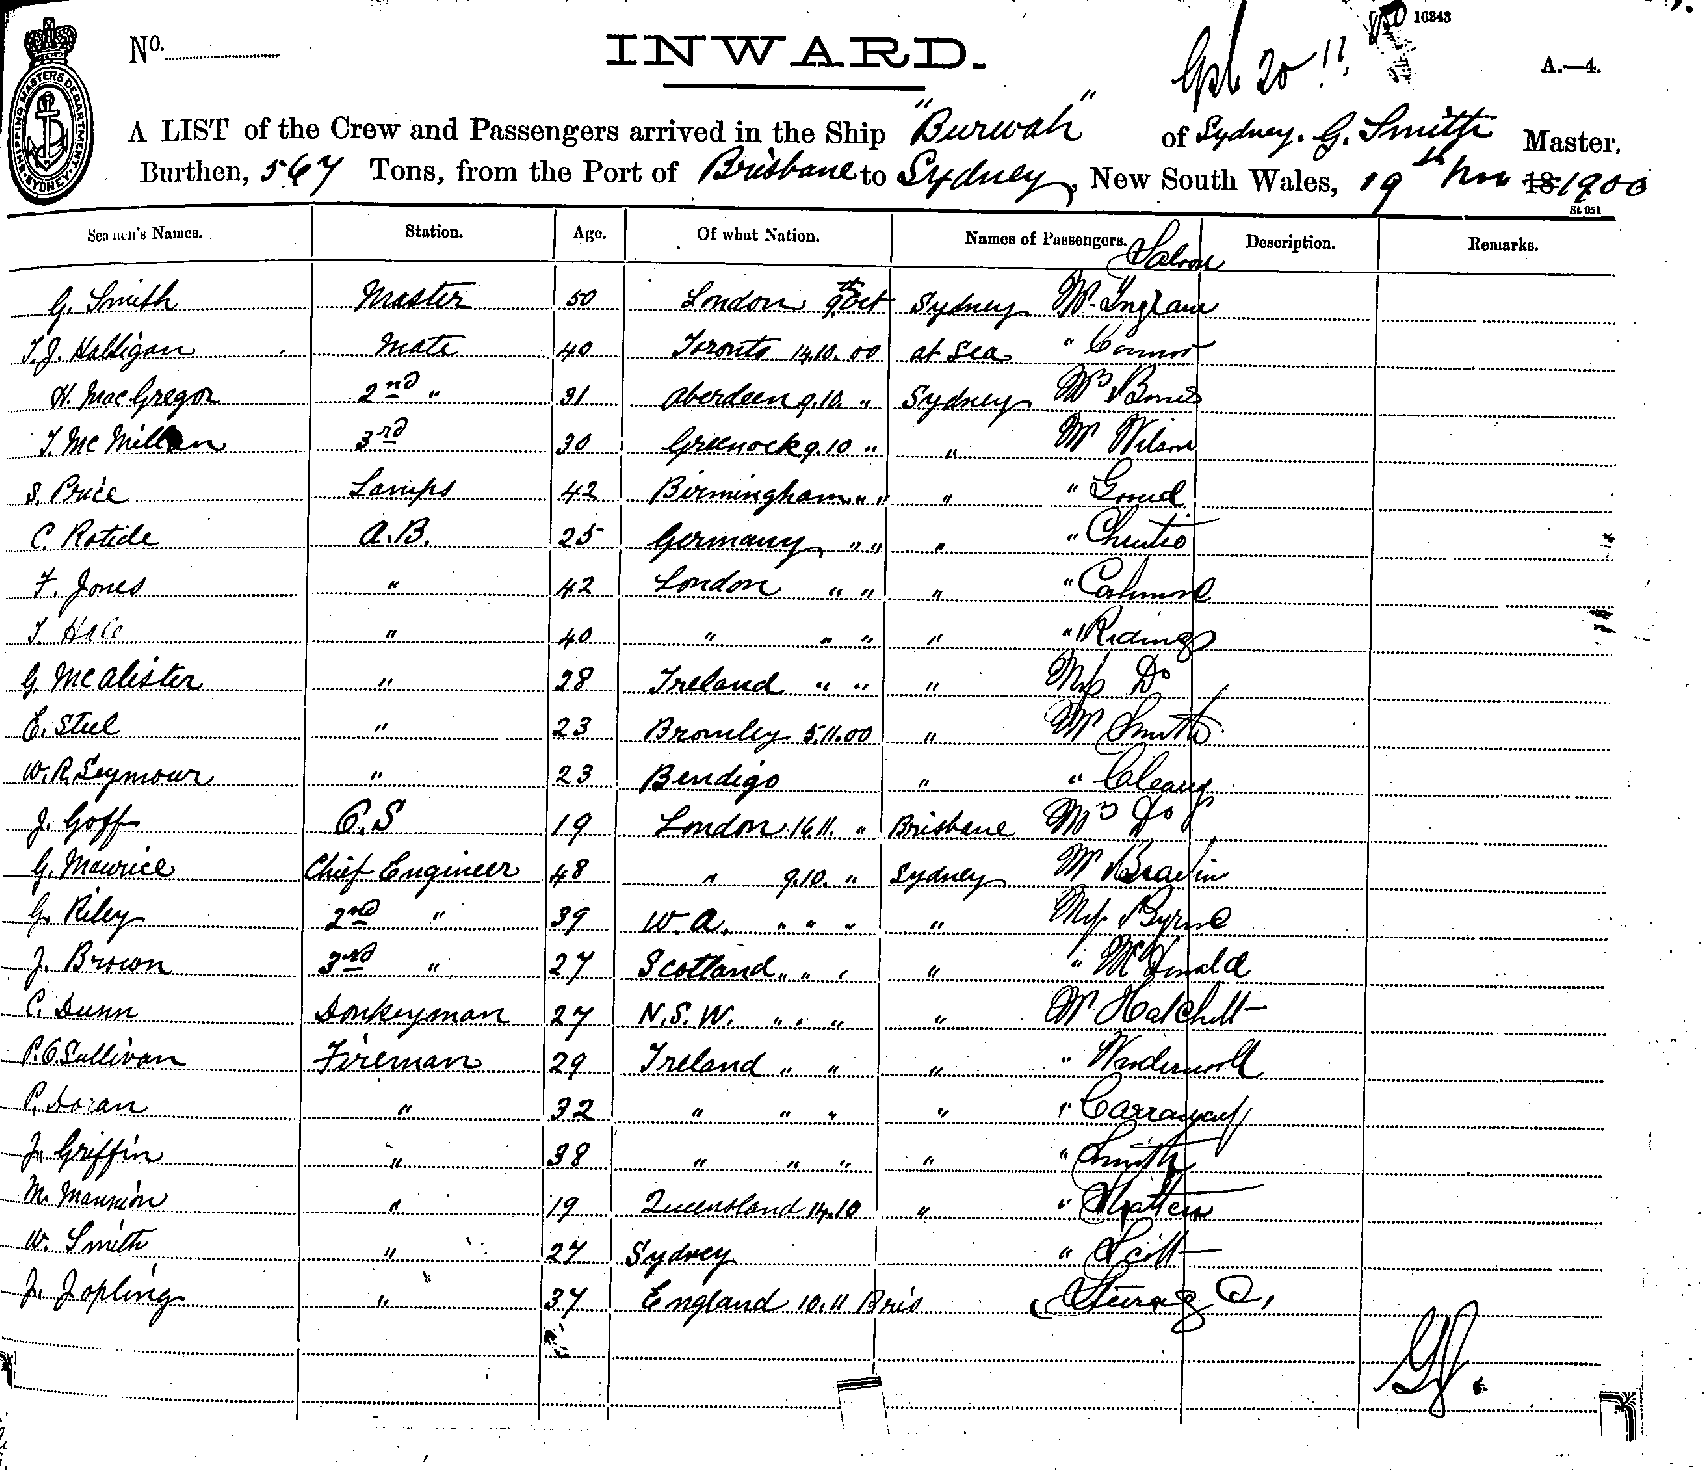 No.
INWARD.
20
16243
A.—4.
SHIPPING MASTERS DEPARTMENT SYDNEY
A LIST of the Crew and Passengers arrived in the Ship "Burwah" of Sydney. G. Smith Master.
Burthen, 567 Tons, from the Port of Brisbane to Sydney, New South Wales, 19th Nov 18 1900
St 951
Seamen's Names. Station. Age. Of what Nation. Names of Passengers. Description. Remarks.
Saloon
G. Smith Master 50 London 9th Oct Sydney Mr Ingram
T.J. Halligan Mate 40 Toronto 14.10.00 at Sea " Connor
H. MacGregor 2nd " 31 Aberdeen 9.10. " Sydney Mrs
T. McMillan 3rd 30 Greenock 9.10 " " Mr Wilson
S. Price Lamps 42 Birmingham " " " "
C. Rotide A.B. 25 Germany " " " "
F. Jones " 42 London " " " "
T. Hale " 40 " " " " " Ridings
G. McAlister " 28 Ireland " " " Miss Do
E. Steel " 23 Bromley 5.11.00 " Mr Smith
W.R. Seymour " 23 Bendigo " " Cleary
J. Goff O.S 19 London 16.11. " Brisbane Mrs Do
G. Maurice Chief Engineer 48 " 9.10. " Sydney Mr
G. Riley 2nd " 39 W.A. " " " " Miss Byrne
J. Brown 3rd " 27 Scotland " " " " " McDonald
C. Dunn Donkeyman 27 N.S.W. " " " " Mr Hatchett
P. O'Sullivan Fireman 29 Ireland " " " "
P. Doran " 32 " " " " "
J. Griffin " 38 " " " " " Smith
M. Mannion " 19 Queensland 14.10 " "
W. Smith " 27 Sydney " Scott
J. Jopling " 37 England 10.11 Bris